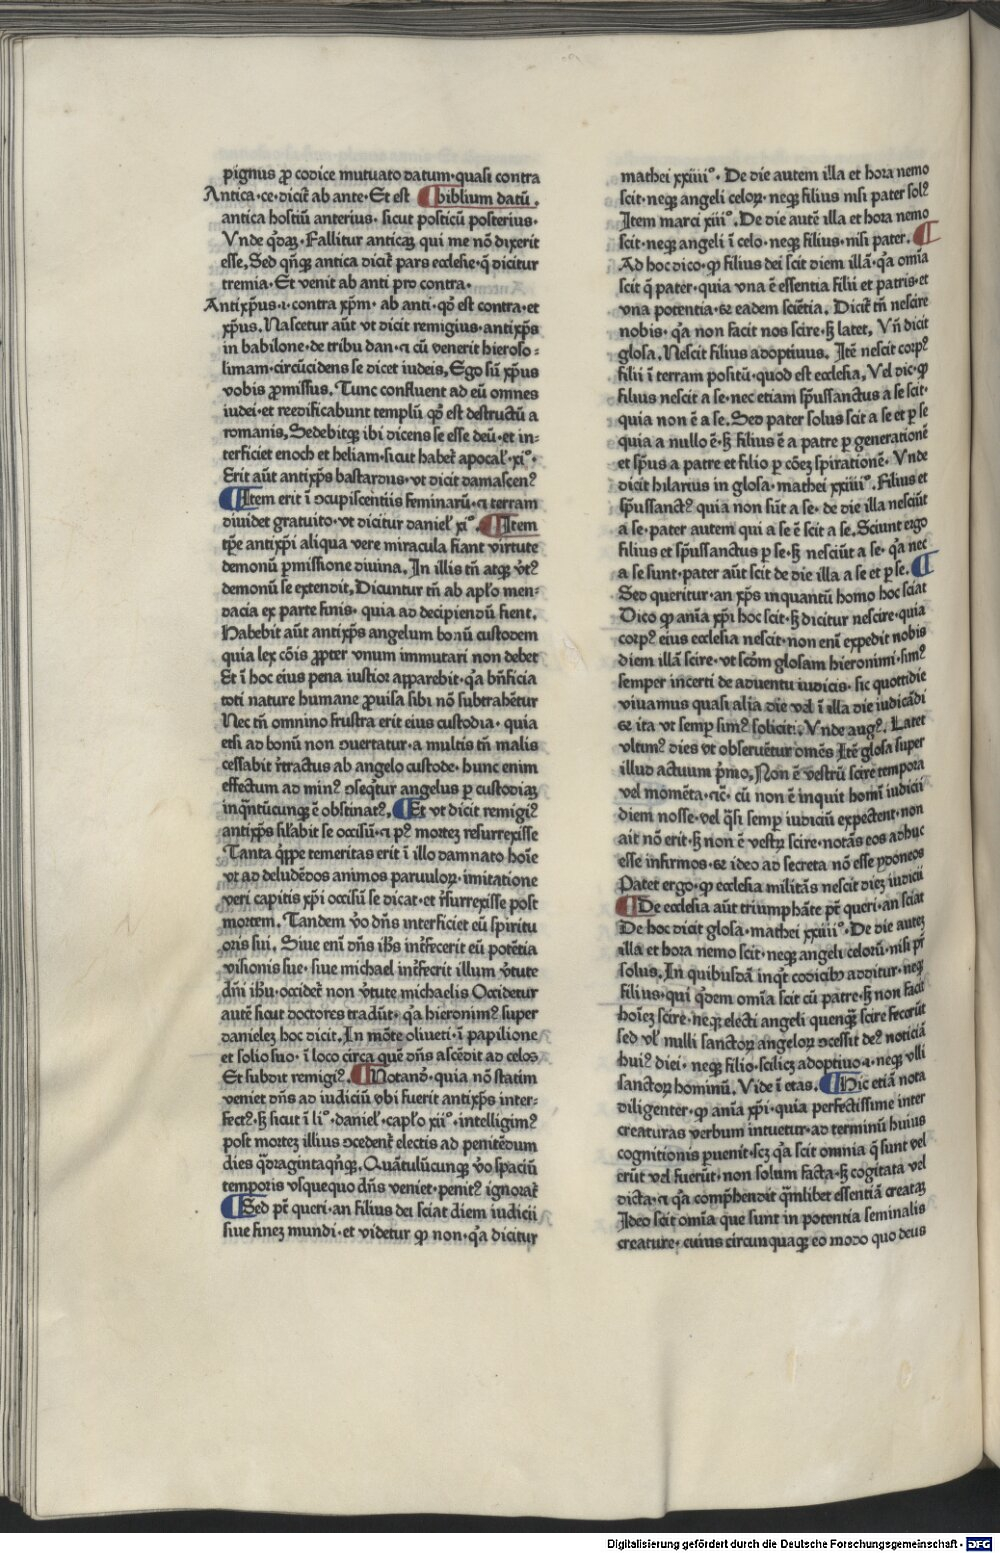 pignus ꝓ codice mutuato datum·quasi contra
Antica·ce·dicit̄ ab ante·Et est ¶biblium datū.
antica hostiū anterius· sicut posticū posterius·
Vnde q̇dā·Fallitur anticaꝫ qui me nō dixerit
esse, Sed qn̄qꝫ antica dicit̄ pars ecclesie·q̄ dicitur
tremia·Et venit ab anti pro contra·
Antixp̄us·i·contra xp̄m· ab anti·qd̓ est contra·et
xp̄us. Nascetur aūt vt dicit remigius·antixp̄s
in babilone·de tribu dan·⁊ cū venerit hieroso⸗
limam·circūcidens se dicet iudeis, Ego sū xp̄us
vobis ꝓmissus. Tunc confluent ad eū omnes
iudei·et reedificabunt templū qd̓ est destructū a
romanis, Sedebitqꝫ ibi dicens se esse deū·et in⸗
terficiet enoch et heliam·sicut habet̄ apocal̓·xi°·
Erit aūt antixp̄s bastardus·vt dicit damascenꝰ
¶Item erit ī ↄcupiscentiis feminarū·⁊ terram
diuidet gratuito·vt dicitur daniel̓ xi°. ¶Item
tp̄e antixp̄i aliqua vere miracula fiant virtute
demonū ꝑmissione diuina. In illis tn̄ atqꝫ v̓tꝰ
demonū se extendit, Dicuntur tn̄ ab apl̓o men⸗
dacia ex parte finis· quia ad decipiendū fient.
Habebit aūt antixp̄s angelum bonū custodem
quia lex cōis ꝓpter vnum immutari non debet
Et ī hoc eius pena iustior apparebit·qa bn̄ficia
toti nature humane ꝓuisa sibi nō subtrahētur
Nec tn̄ omnino frustra erit eius custodia· quia
etsi ad bonū non ↄuertatur·a multis tn̄ malis
cessabit r̄tractus ab angelo custode·hunc enim
effectum ad minꝰ ↄseqtur angelus ꝑ custodiaꝫ
inqn̄tūcunqꝫ ē obstinatꝰ. ¶Et vt dicit remigiꝰ
antixp̄s sil̓abit se occisū·⁊ pꝰ morteꝫ resurrexisse
Tanta qppe temeritas erit ī illo damnato hoīe
vt ad deludēdos animos paruuloꝝ·imitatione
veri capitis xp̄i occisū se dicat·et r̄surrexisse post
mortem. Tandem v̓o dn̄s interficiet eū spiritu
oris sui. Siue eni dn̄s ih̄s int̄fecerit eū potētia
visionis sue·siue michael int̄fecrit illum v̓tute
dn̄i ih̄u·occidet̄ non v̓tute michaelis Occidetur
autē sicut doctores tradūt·qa hieronimꝰ super
danieleꝫ hoc dicit. In mōte oliueti·ī papilione
et solio suo·ī loco circa quē dn̄s ascēdit ad celos
Et subdit remigiꝰ. ¶Notandꝰ·quia nō statim
veniet dn̄s ad iudiciū vbi fuerit antixp̄s inter⸗
fectꝰ·sꝫ sicut ī li°·daniel̓·capl̓o xii°·intelligimꝰ
post morteꝫ illius ↄcedent̄ electis ad penitēdum
dies qdragintaqnqꝫ. Quātulūcunqꝫ v̓o spaciū
temporis vsquequo dn̄s veniet·penitꝰ ignorat̄
¶Sed pt̄ queri·an filius dei sciat diem iudicii
siue fineꝫ mundi·et videtur ꝙ non·qa dicitur
mathei xxiiii°·De die autem illa et hora nemo
scit·neqꝫ angeli celoꝝ·neqꝫ filius nisi pater solꝰ
Item marci xiii°. De die autē illa et hora nemo
scit·neqꝫ angeli ī celo·neqꝫ filius·nisi pater. ¶
Ad hoc dico·ꝙ filius dei scit diem illā·qa omīa
scit q̄ pater·quia vna ē essentia filii et patris·et
vna potentia·⁊ eadem sciētia. Dicit̄ tn̄ nescire
nobis·qa non facit nos scire·sꝫ latet, Vn̄ dicit
glosa. Nescit filius adoptiuus. Itē nescit corpꝰ
filii ī terram positū·quod est ecclesia, Vel dic·ꝙ
filius nescit a se·nec etiam sp̄ussanctus a se scit·
quia non ē a se. Sed pater solus scit a se et ꝑ se
quia a nullo ē·sꝫ filius ē a patre ꝑ generationē
et sp̄us a patre et filio ꝑ cōeꝫ spirationē. Vnde
dicit hilarius in glosa·mathei xxiiii°. Filius et
sp̄ussanctꝰ quia non sūt a se·de die illa nesciūt
a se·pater autem qui a se ē scit a se. Sciunt ergo
filius et sp̄ussanctus ꝑ se·sꝫ nesciūt a se·qa nec
a se sunt·pater aūt scit de die illa a se et ꝑ se. ¶
Sed queritur·an xp̄s inquantū homo hoc sciat
Dico ꝙ aīa xp̄i hoc scit·sꝫ dicitur nescire·quia
corpꝰ eius ecclesia nescit·non eni expedit nobis
diem illā scire·vt scd̓m glosam hieronimi·simꝰ
semper incerti de aduentu iudicis·sic quottidie
viuamus quasi alia die vel ī illa die iudicādi
⁊ ita vt semꝑ simꝰ soliciti. Vnde augꝰ. Latet
vltimꝰ dies vt obseruētur omēs Itē glosa super
illud actuum pͥmo, Non ē vestrū scire tempora
vel momēta·⁊c̄· cū non ē inquit homī iudicii
diem nosse·vel qsi semꝑ iudiciū expectent·non
ait nō erit·sꝫ non ē vestꝝ scire·notās eos adhuc
esse infirmos·⁊ ideo ad secreta nō esse ydoneos
Patet ergo·ꝙ ecclesia militās nescit dieꝫ iudicii
¶De ecclesia aūt triumphāte pt̄ queri·an sciat
De hoc dicit glosa·mathei xxiiii°·De die auteꝫ
illa et hora nemo scit·neqꝫ angeli celorū·nisi pr̄
solus. In quibusdā inqt codicibꝫ additur·neqꝫ
filius·qui qdem omīa scit cū patre·sꝫ non facit
hoīeꝫ scire·neqꝫ electi angeli quenqꝫ scire fecerūt
sed vl̓ nulli sanctoꝝ angeloꝝ ↄcessit deꝰ noticiā
huiꝰ diei·neqꝫ filio·scilicꝫ adoptiuo·⁊·neqꝫ vlli
sanctoꝝ hominū. Vide ī etas. ¶Hic etiā nota
diligenter·ꝙ aīa xp̄i·quia perfectissime inter
creaturas verbum intuetur·ad terminū huius
cognitionis ꝑuenit·scꝫ qa scit omnia q̄ sunt vel
erūt vel fuerūt·non solum facta·sꝫ cogitata vel
dicta·⁊ qa comp̄hendit qmlibet essentiā creataꝫ
Ideo scit omīa que sunt in potentia seminalis
creature·cuius circunquaqꝫ eo modo quo deus
Digitalisierung gefördert durch die Deutsche Forschungsgemeinschaft - DFG